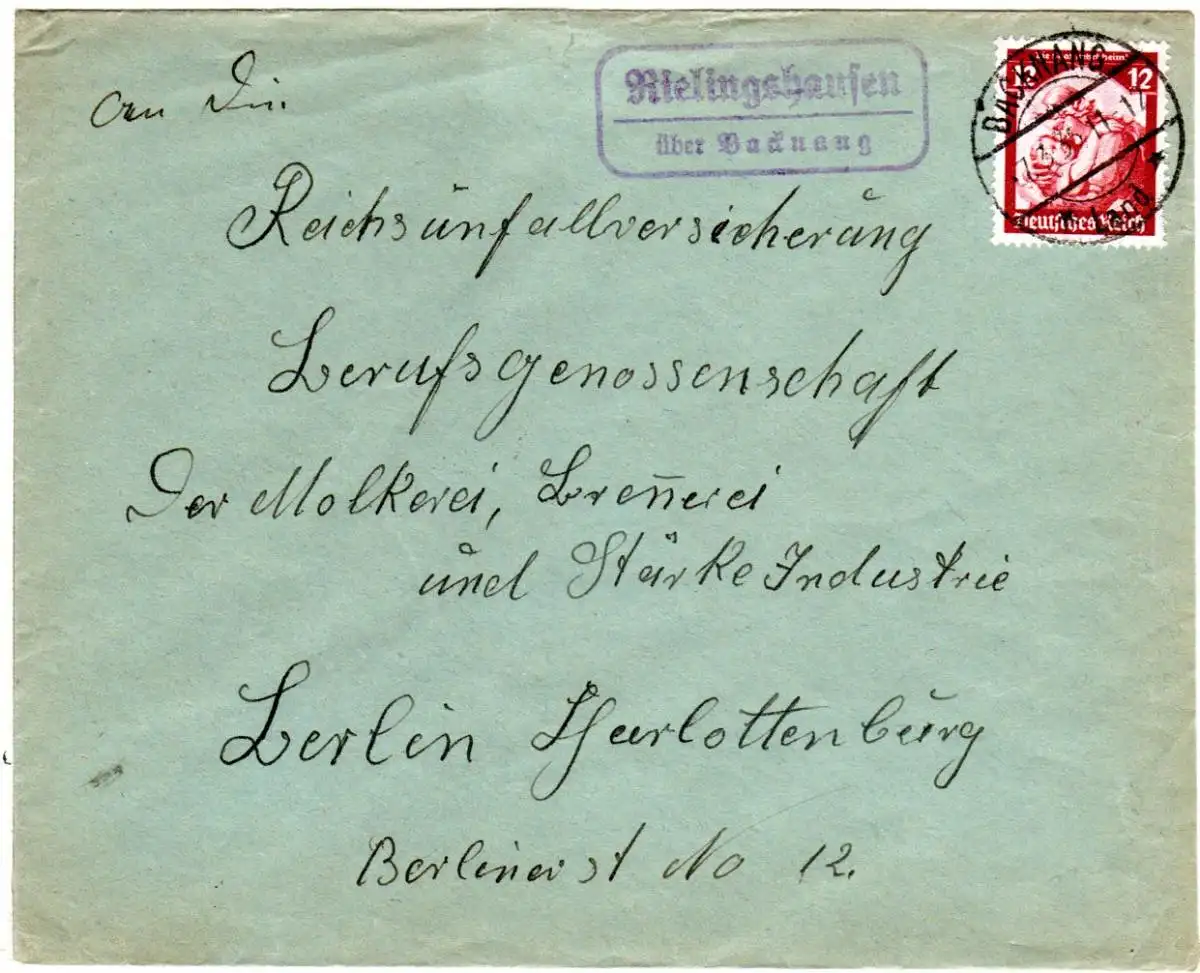 Rielingshausen
über Backnang
12 12
BACKNANG
11-12
Land
Deutsches Reich
An Die
Reichsunfallversicherung
Berufsgenossenschaft
Der Molkerei, Breñerei
und Stärke Industrie
Berlin Charlottenburg
Berlinerst No 12.